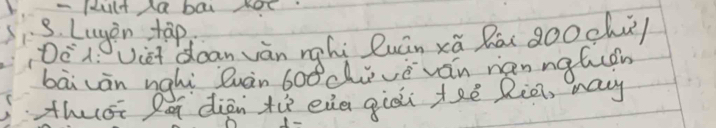 - Rút ra bài học.
3. Luyện tập.
Đề 1: Viết đoạn văn nghị luận xã hội 200 chữ /
bài văn nghị luận 600 chữ về vấn nạn nghiện
thuốc lá điện tử của giới trẻ hiện nay